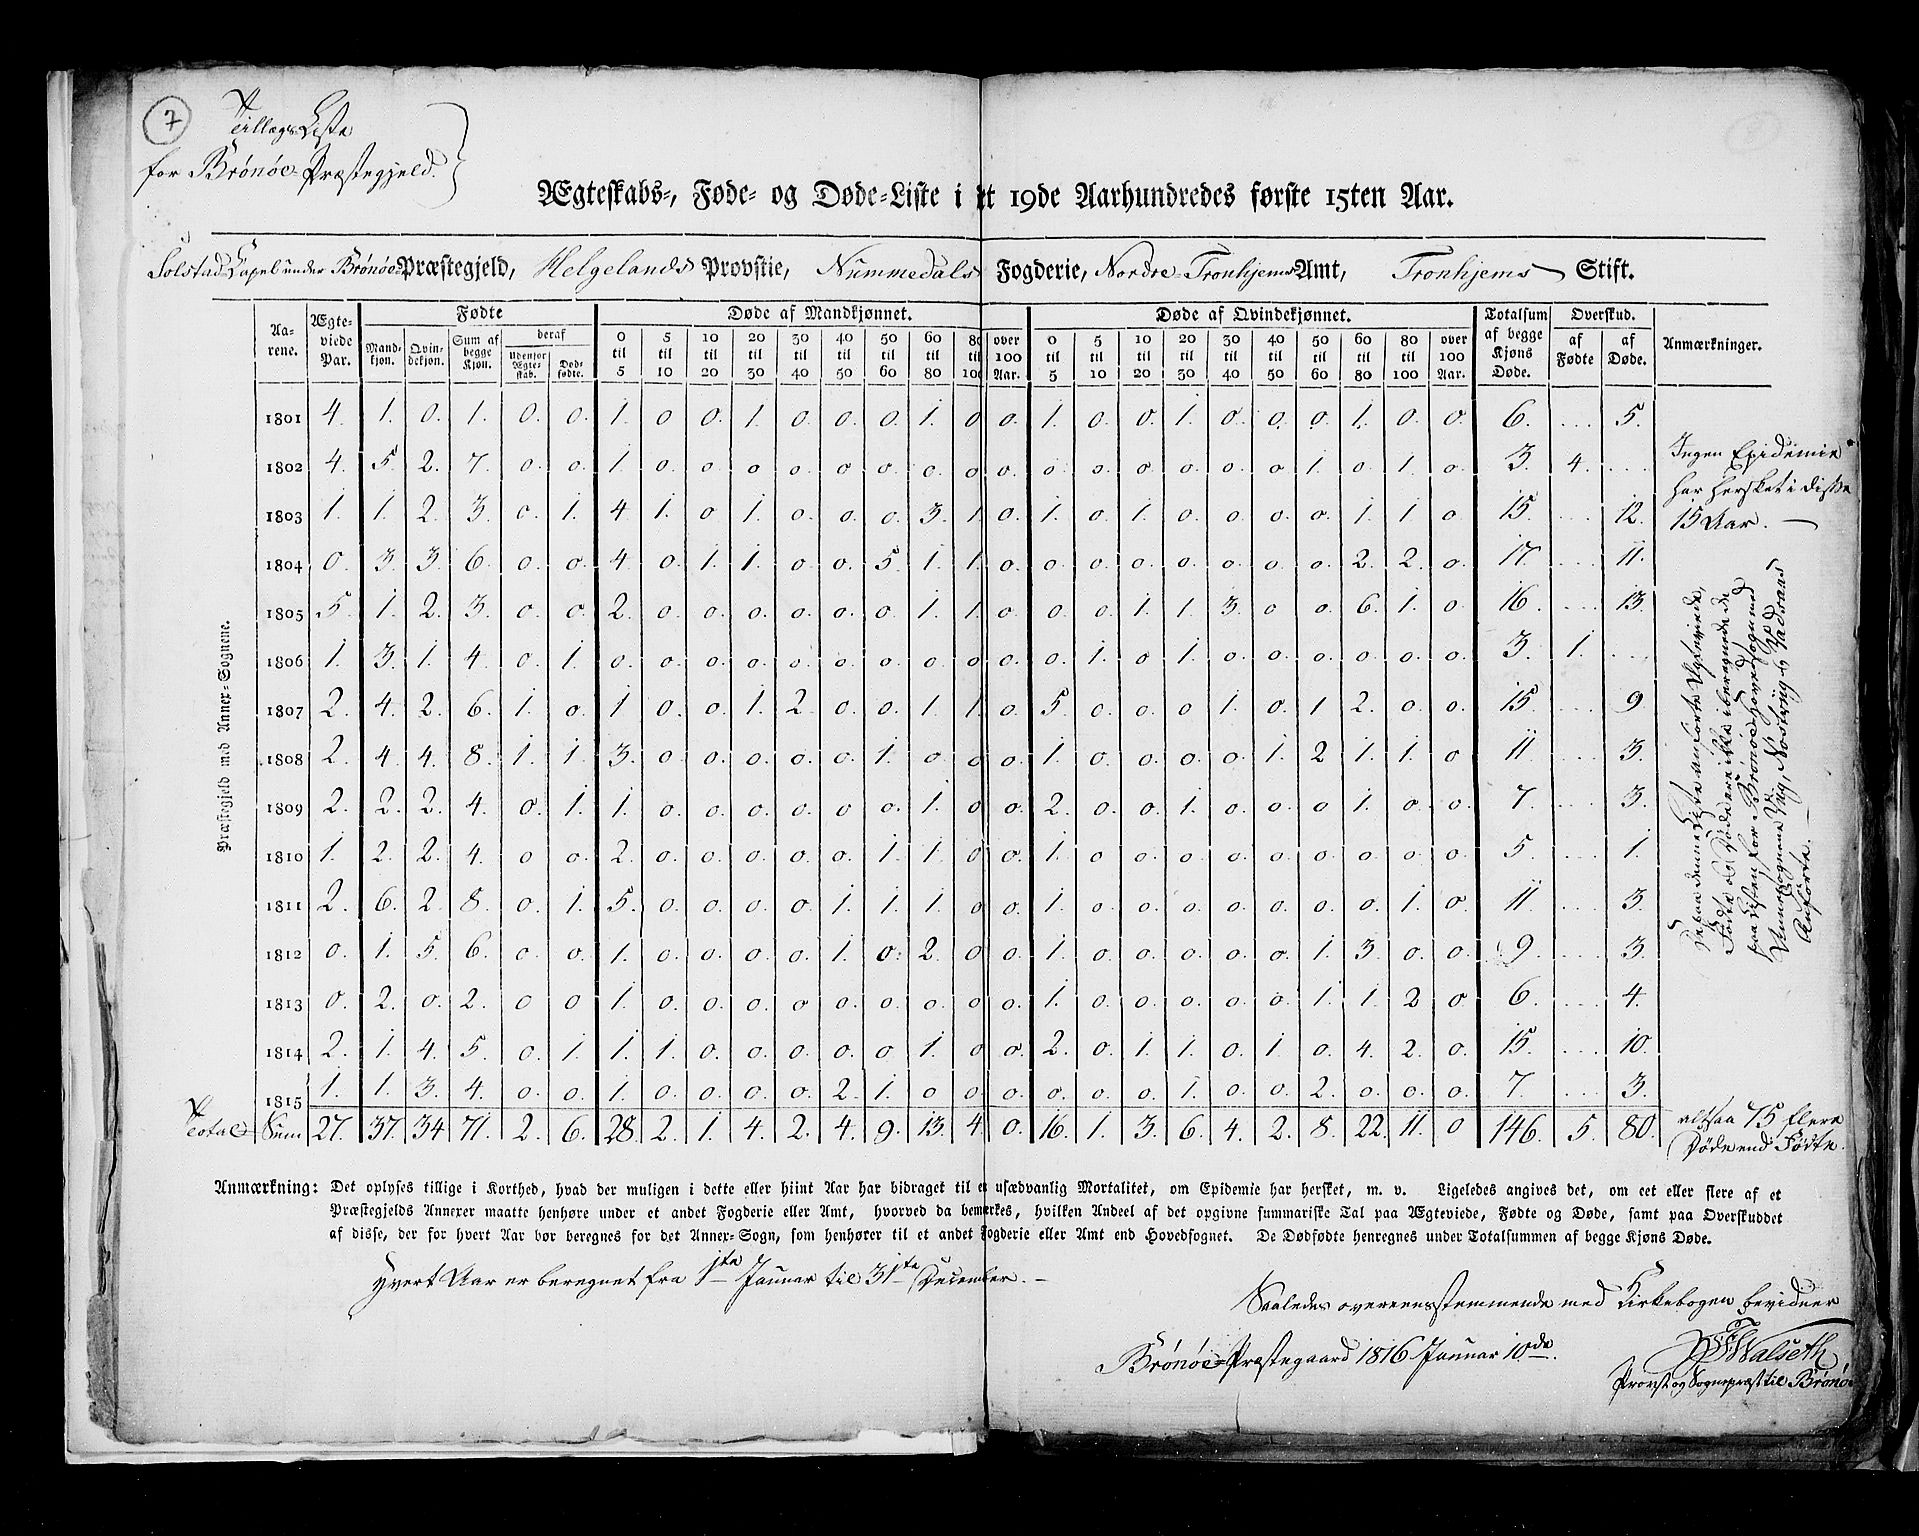 7
Tillægs Liste
for Brønøe Præstegjeld.
Ægteskabs-, Føde- og Døde-Liste i et 19de Aarhundredes første 15ten Aar.
Solstad Capel under Brønøe Præstegjeld, Helgelands Provstie, Nummedals Fogderie, Nordre Tronhjems Amt, Tronhjems Stift.
Præstegjeld med Annex-Sognene.
Aarene. | Ægteviede Par. | Fødte | Døde af Mandkjønnet. | Døde af Qvindekjønnet. | Totalsum af begge Kjøns Døde. | Overskud. | Anmærkninger.
Mandkjøn. | Qvindekjøn. | Sum af begge Kjøn. | deraf Udenfor Ægteskab. | Dødfødte. | 0 til 5 | 5 til 10 | 10 til 20 | 20 til 30 | 30 til 40 | 40 til 50 | 50 til 60 | 60 til 80 | 80 til 100 | over 100 Aar. | 0 til 5 | 5 til 10 | 10 til 20 | 20 til 30 | 30 til 40 | 40 til 50 | 50 til 60 | 60 til 80 | 80 til 100 | over 100 Aar. | af Fødte | af Døde.
1801 4. 1. 0. 1. 0. 0. 1. 0 0. 1. 0. 0. 0. 1. 0 0. 1. 0. 0. 1. 0. 0. 0. 1. 0. 0. 6. ... 5.
1802 4. 5. 2. 7. 0. 0. 1. 0. 0 0. 0. 0. 0. 0. 0. 0. 0. 0. 0. 0. 0. 0. 1. 0. 1. 0. 3. 4. ...
1803 1. 1. 2. 3. 0. 1. 4 1. 0 1. 0. 0. 0. 3. 1. 0. 1. 0. 1. 0. 0. 0. 0. 1. 1. 0 15. ... 12.
1804 0. 3. 3. 6. 0. 0. 4. 0. 1. 1. 0. 0. 5. 1. 1. 0. 0. 0. 0. 0. 0. 0. 0. 2. 2. 0. 17. ... 11.
1805 5. 1. 2. 3. 0. 0. 2. 0. 0. 0. 0. 0. 0. 1. 1. 0 0. 0. 1. 1. 3. 0 0. 6. 1. 0. 16. ... 13.
1806 1. 3. 1. 4. 0. 1. 0. 0. 0. 0. 0. 0. 0. 0. 0. 0. 0. 1. 0 1. 0. 0. 0. 0. 0. 0. 3. 1. ...
1807 2. 4. 2. 6. 1. 0. 1 0. 0. 1. 2. 0. 0. 1. 1. 0. 5. 0. 0. 0 1. 0. 1 2. 0. 0. 15. ... 9.
1808 2. 4. 4. 8. 1. 1. 3. 0. 0. 0. 0. 0. 1. 0. 0 0. 1. 0. 0. 0. 0. 1. 2 1. 1. 0 11. ... 3.
1809 2. 2. 2. 4. 0. 1. 1. 0. 0. 0. 0. 0. 0. 1. 0 0. 2. 0. 0. 1. 0. 0. 0. 1. 0. 0. 7. ... 3.
1810 1. 2. 2. 4. 0 0. 2. 0. 0. 0. 0. 0. 1. 1. 0 0. 1. 0. 0. 0. 0. 0. 0. 0. 0. 0. 5. ... 1.
1811 2. 6. 2. 8. 0. 1. 5. 0. 0. 0. 0. 1. 1. 1. 0 0. 1. 0. 0. 0. 0. 0. 0. 0. 1. 0. 11. ... 3.
1812 0. 1. 5. 6. 0. 0. 1. 0. 0. 0. 0. 1. 0. 2. 0 0. 1. 0. 0. 0. 0. 0. 1. 3. 0. 0. 9. ... 3.
1813 0. 2. 0. 2. 0 0 1. 0. 0. 0. 0. 0. 0. 0. 0. 0. 1. 0. 0. 0. 0. 0. 1. 1. 2 0 6. ... 4.
1814 2. 1. 4. 5. 0. 1. 1. 1. 0. 0. 0. 0. 0 1. 0 0. 2. 0. 1. 1. 0 1. 0. 4. 2. 0. 15. ... 10.
1815 1. 1. 3. 4. 0. 0. 1. 0. 0. 0. 0. 2. 1. 0 0 0. 0. 0. 0. 1. 0. 0. 2. 0. 0. 0. 7. ... 3.
Total Sum 27. 37. 34 71. 2. 6. 28. 2. 1. 4. 2. 4. 9. 13. 4 0. 16. 1. 3. 6. 4. 2. 8. 22. 11. 0 146. 5. 80.
Ingen Epidemie
har hersket i disse
15 Aar. —
De paa denne Liste anførte Ægteviede,
Fødte og Døde ere ikke iberegnede de
paa Listen for Brønøe Hovedsogn med
anførte. —
altsaa 75 flere
Døde end Fødte.
Anmærkning: Det oplyses tillige i Korthed, hvad der muligen i dette eller hiint Aar har bidraget til en usædvanlig Mortalitet, om Epidemie har hersket, m. v. Ligeledes angives det, om eet eller flere af et
Præstegjelds Annexer maatte henhøre under et andet Fogderie eller Amt, hvorved da bemærkes, hvilken Andeel af det opgivne summariske Tal paa Ægteviede, Fødte og Døde, samt paa Overskuddet
af disse, der for hvert Aar bør beregnes for det Annex-Sogn, som henhører til et andet Fogderie eller Amt end Hovedsognet. De Dødfødte henregnes under Totalsummen af begge Kjøns Døde.
Hvert Aar er beregnet fra 1ste Januar til 31te December. —
Saaledes overeensstemmende med Kirkebogen bevidner
Brønøe Præstegaard 1816 Januar 10de.
Walseth
Provst og Sognepræst til Brønøe